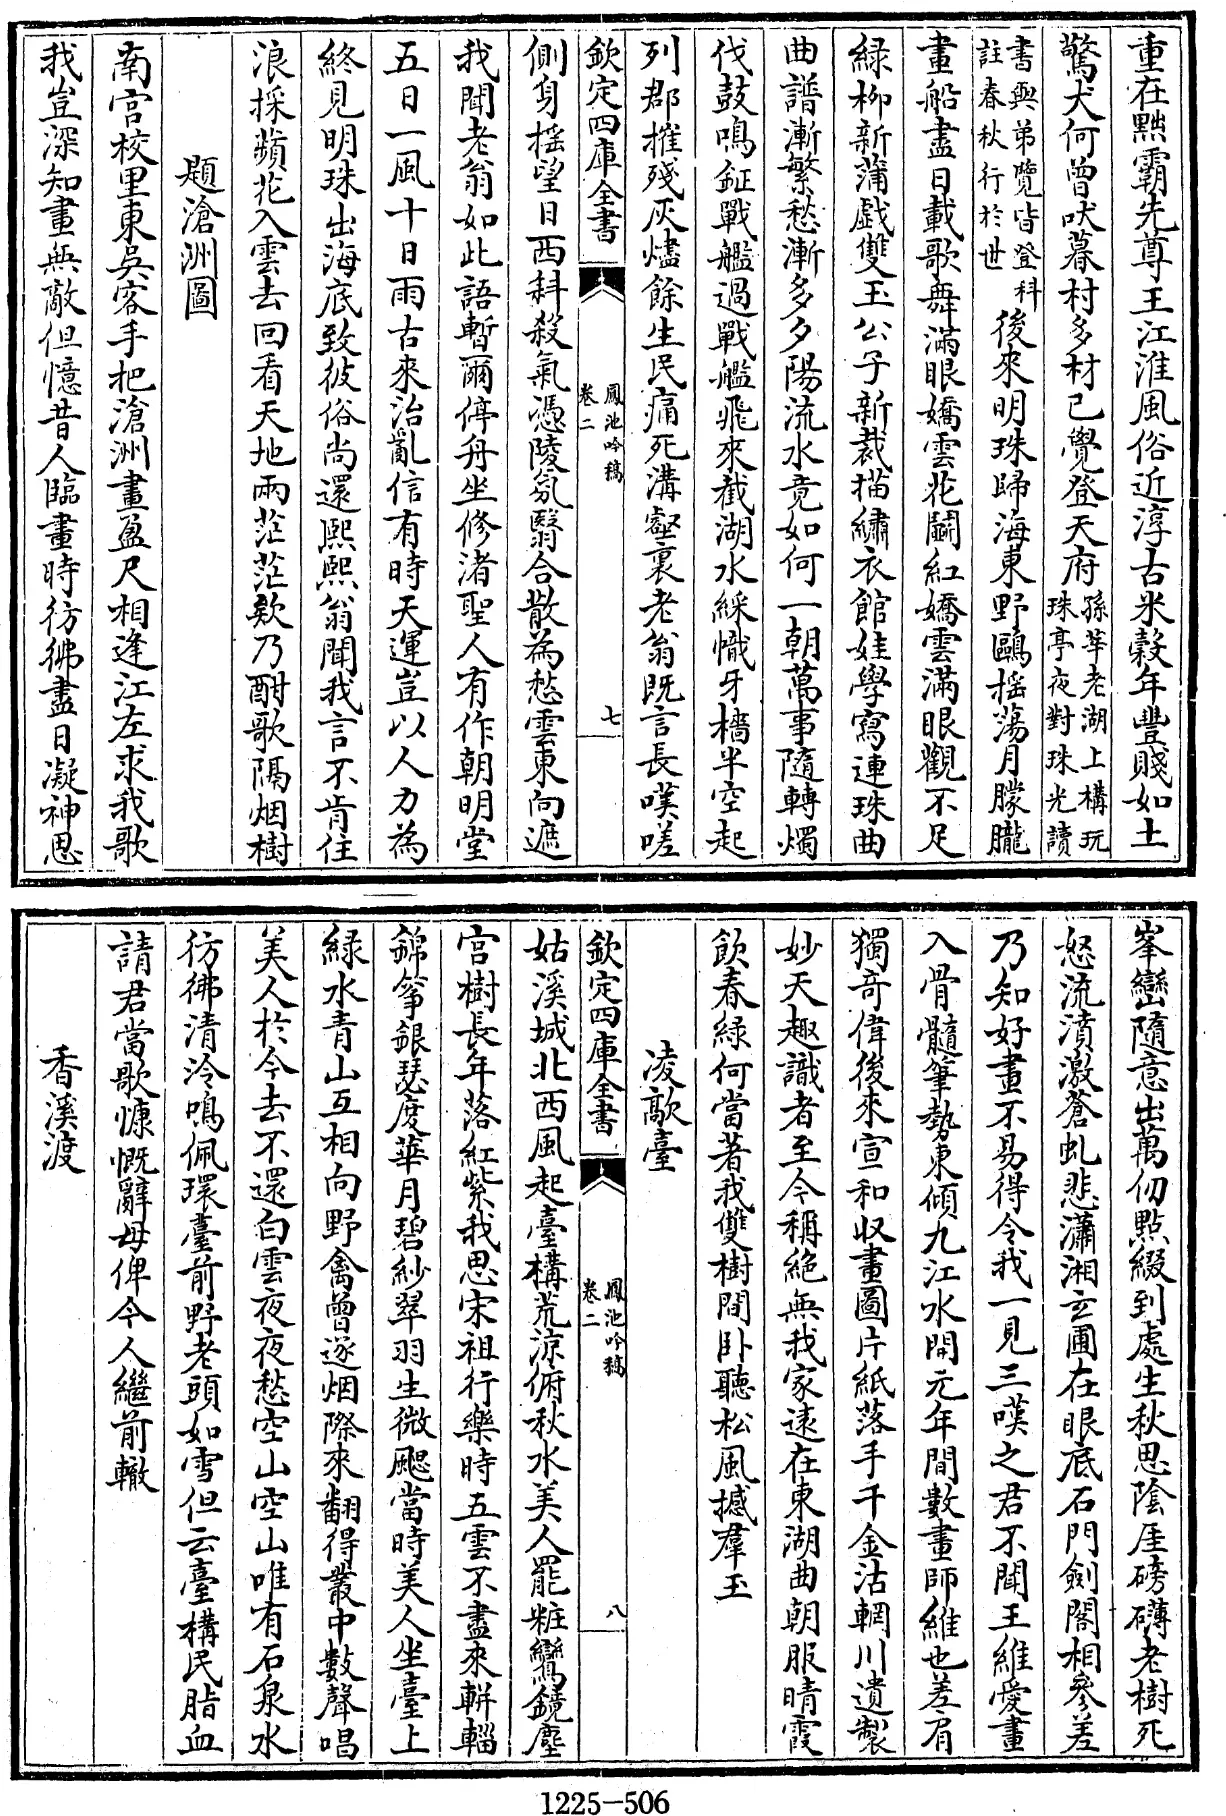 重在黜霸先尊王江淮風俗近淳古米穀年豐賤如土
驚犬何曾吠暮村多材已覺登天府孫莘老湖上構玩珠亭夜對珠光讀
書與弟覽皆登科註春秋行於世後來明珠歸海東野鷗揺蕩月朦朧
畫船盡日載歌舞滿眼嬌雲花鬭紅嬌雲滿眼觀不足
緑柳新蒲戯雙玉公子新裁描繡衣館娃學寫連珠曲
曲譜漸繁愁漸多夕陽流水竟如何一朝萬事隨轉燭
伐鼓鳴鉦戰艦過戰艦飛來截湖水綵幟牙檣半空起
列郡摧殘灰燼餘生民痛死溝壑裏老翁既言長嘆嗟
欽定四庫全書
鳳池吟稿
卷二
七
側身揺望日西斜殺氣憑陵氛翳合散為愁雲東向遮
我聞老翁如此語暫爾停舟坐修渚聖人有作朝明堂
五日一風十日雨古來治亂信有時天運豈以人力為
終見明珠出海底致彼俗尚還熙熙翁聞我言不肯住
浪採蘋花入雲去回看天地兩茫茫欸乃酣歌隔烟樹
題滄洲圖
南宫校里東吳客手把滄洲畫盈尺相逢江左求我歌
我豈深知畫無敵但憶昔人臨畫時彷彿盡日凝神思
峯巒隨意出萬仞點綴到處生秋思陰厓磅礴老樹死
怒流濆激蒼虬悲瀟湘玄圃在眼底石門劍閣相參差
乃知好畫不易得令我一見三嘆之君不聞王維愛畫
入骨髓筆勢東傾九江水開元年間數畫師維也差肩
獨奇偉後來宣和収畫圖片紙落手千金沽輞川遺製
妙天趣識者至今稱絶無我家逺在東湖曲朝服晴霞
飲春緑何當著我雙樹間卧聽松風撼羣玉
凌歊臺
欽定四庫全書
鳳池吟稿
卷二
八
姑溪城北西風起臺構荒凉俯秋水美人罷粧鸞鏡塵
宫樹長年落紅紫我思宋祖行樂時五雲不盡來輧輜
錦筝銀瑟度華月碧紗翠羽生微颸當時美人坐臺上
緑水青山互相向野禽曽逐烟際來翻得叢中數聲唱
美人於今去不還白雲夜夜愁空山空山唯有石泉水
彷彿清泠鳴佩環臺前野老頭如雪但云臺構民脂血
請君當歌慷慨辭毋俾今人繼前轍
香溪渡
1225-506